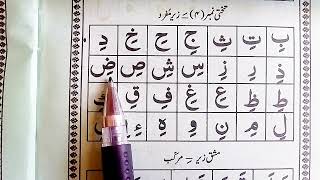 تختی نمبر (۴) = زیر مفرد
بِ تِ ثِ جِ حِ خِ دِ
ذِ رِ زِ سِ شِ صِ ضِ
طِ ظِ عِ غِ فِ قِ
لِ مِ نِ وِ هِ ءِ
مشق زیر = مرکب